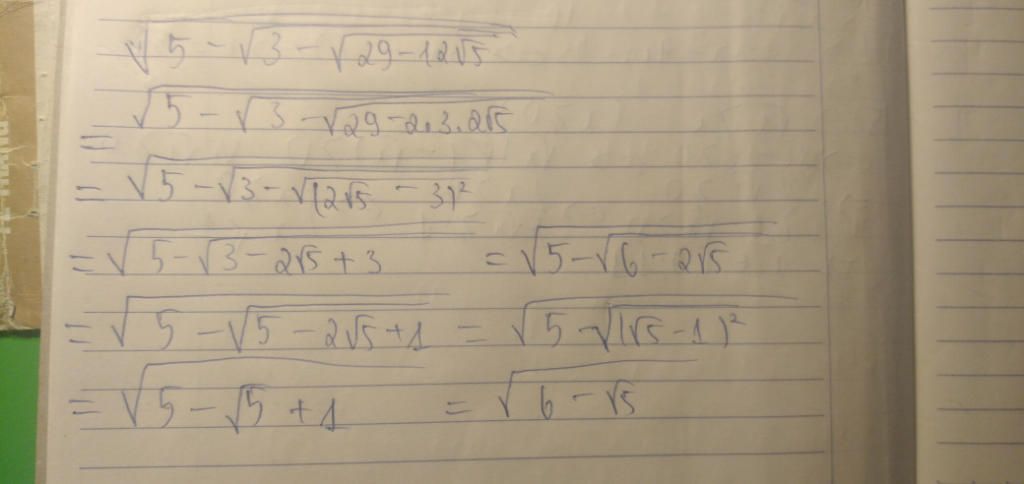 √(5 - √(3 - √(29 - 12√5)))
= √(5 - √(3 - √(29 - 2.3.2√5)))
= √(5 - √(3 - √((2√5 - 3)²)))
= √(5 - √(3 - 2√5 + 3)) = √(5 - √(6 - 2√5))
= √(5 - √(5 - 2√5 + 1)) = √(5 - √((√5 - 1)²))
= √(5 - √5 + 1) = √(6 - √5)